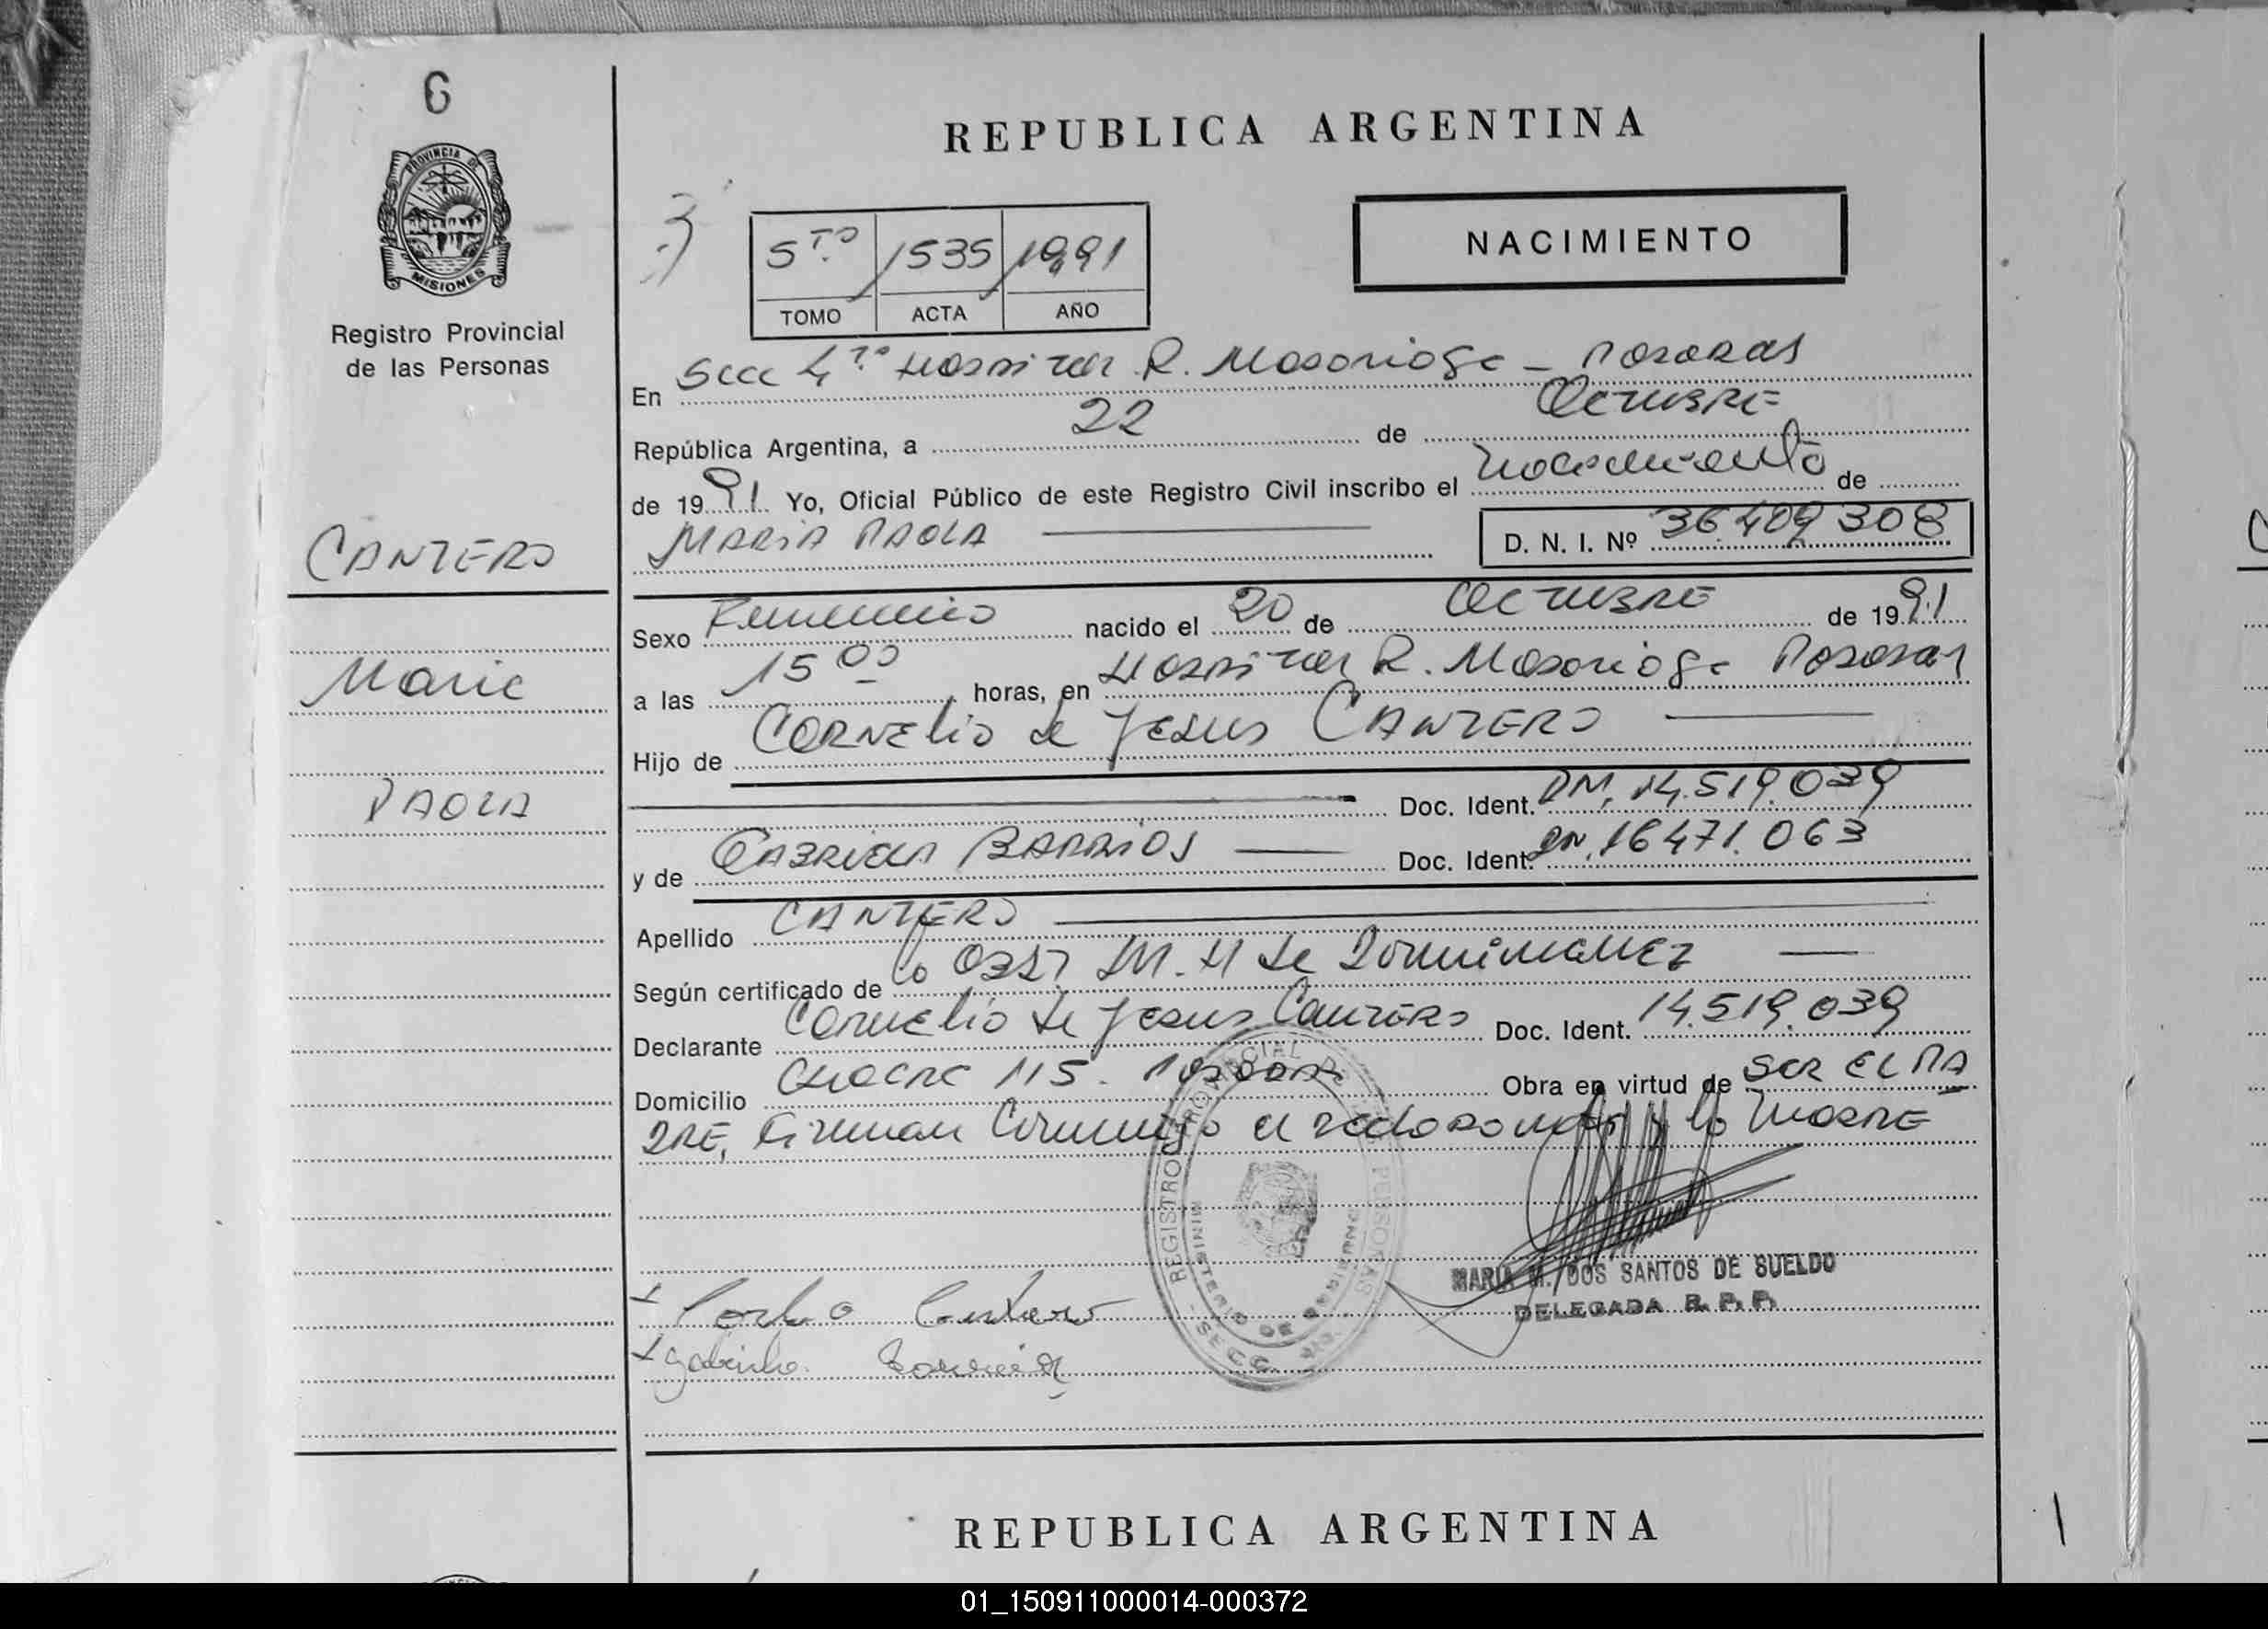 6
REPUBLICA ARGENTINA
PROVINCIA DE
MISIONES
Registro Provincial
de las Personas
5TO 1535 1991
TOMO ACTA AÑO
NACIMIENTO
En Secc 4ta Hospital R. Madariaga - Posadas
República Argentina, a 22 de Octubre
de 1991 Yo, Oficial Público de este Registro Civil inscribo el nacimiento de
MARIA PAOLA
D. N. I. Nº 36.409.308
CANTERO
Maria
PAOLA
Sexo Femenino nacido el 20 de Octubre de 1991
a las 15 00 horas, en Hospital R. Madariaga Posadas
Hijo de CORNELIO de Jesus CANTERO
Doc. Ident. DM. 14.519.039
y de GABRIELA BARRIOS Doc. Ident. 16.471.063
Apellido CANTERO
Según certificado de la Obst M. H de Dominguez
Declarante Cornelio de Jesus Cantero Doc. Ident. 14.519.039
Domicilio 115. Posadas Obra en virtud de SER EL PA
DRE, Firman Conmigo el declarante y la MADRE
REGISTRO PROVINCIAL DE LAS PERSONAS
MINISTERIO DE GOBIERNO
SECC.
MARIA M. DOS SANTOS DE SUELDO
DELEGADA R. P. P.
Cantero
REPUBLICA ARGENTINA
01_150911000014-000372